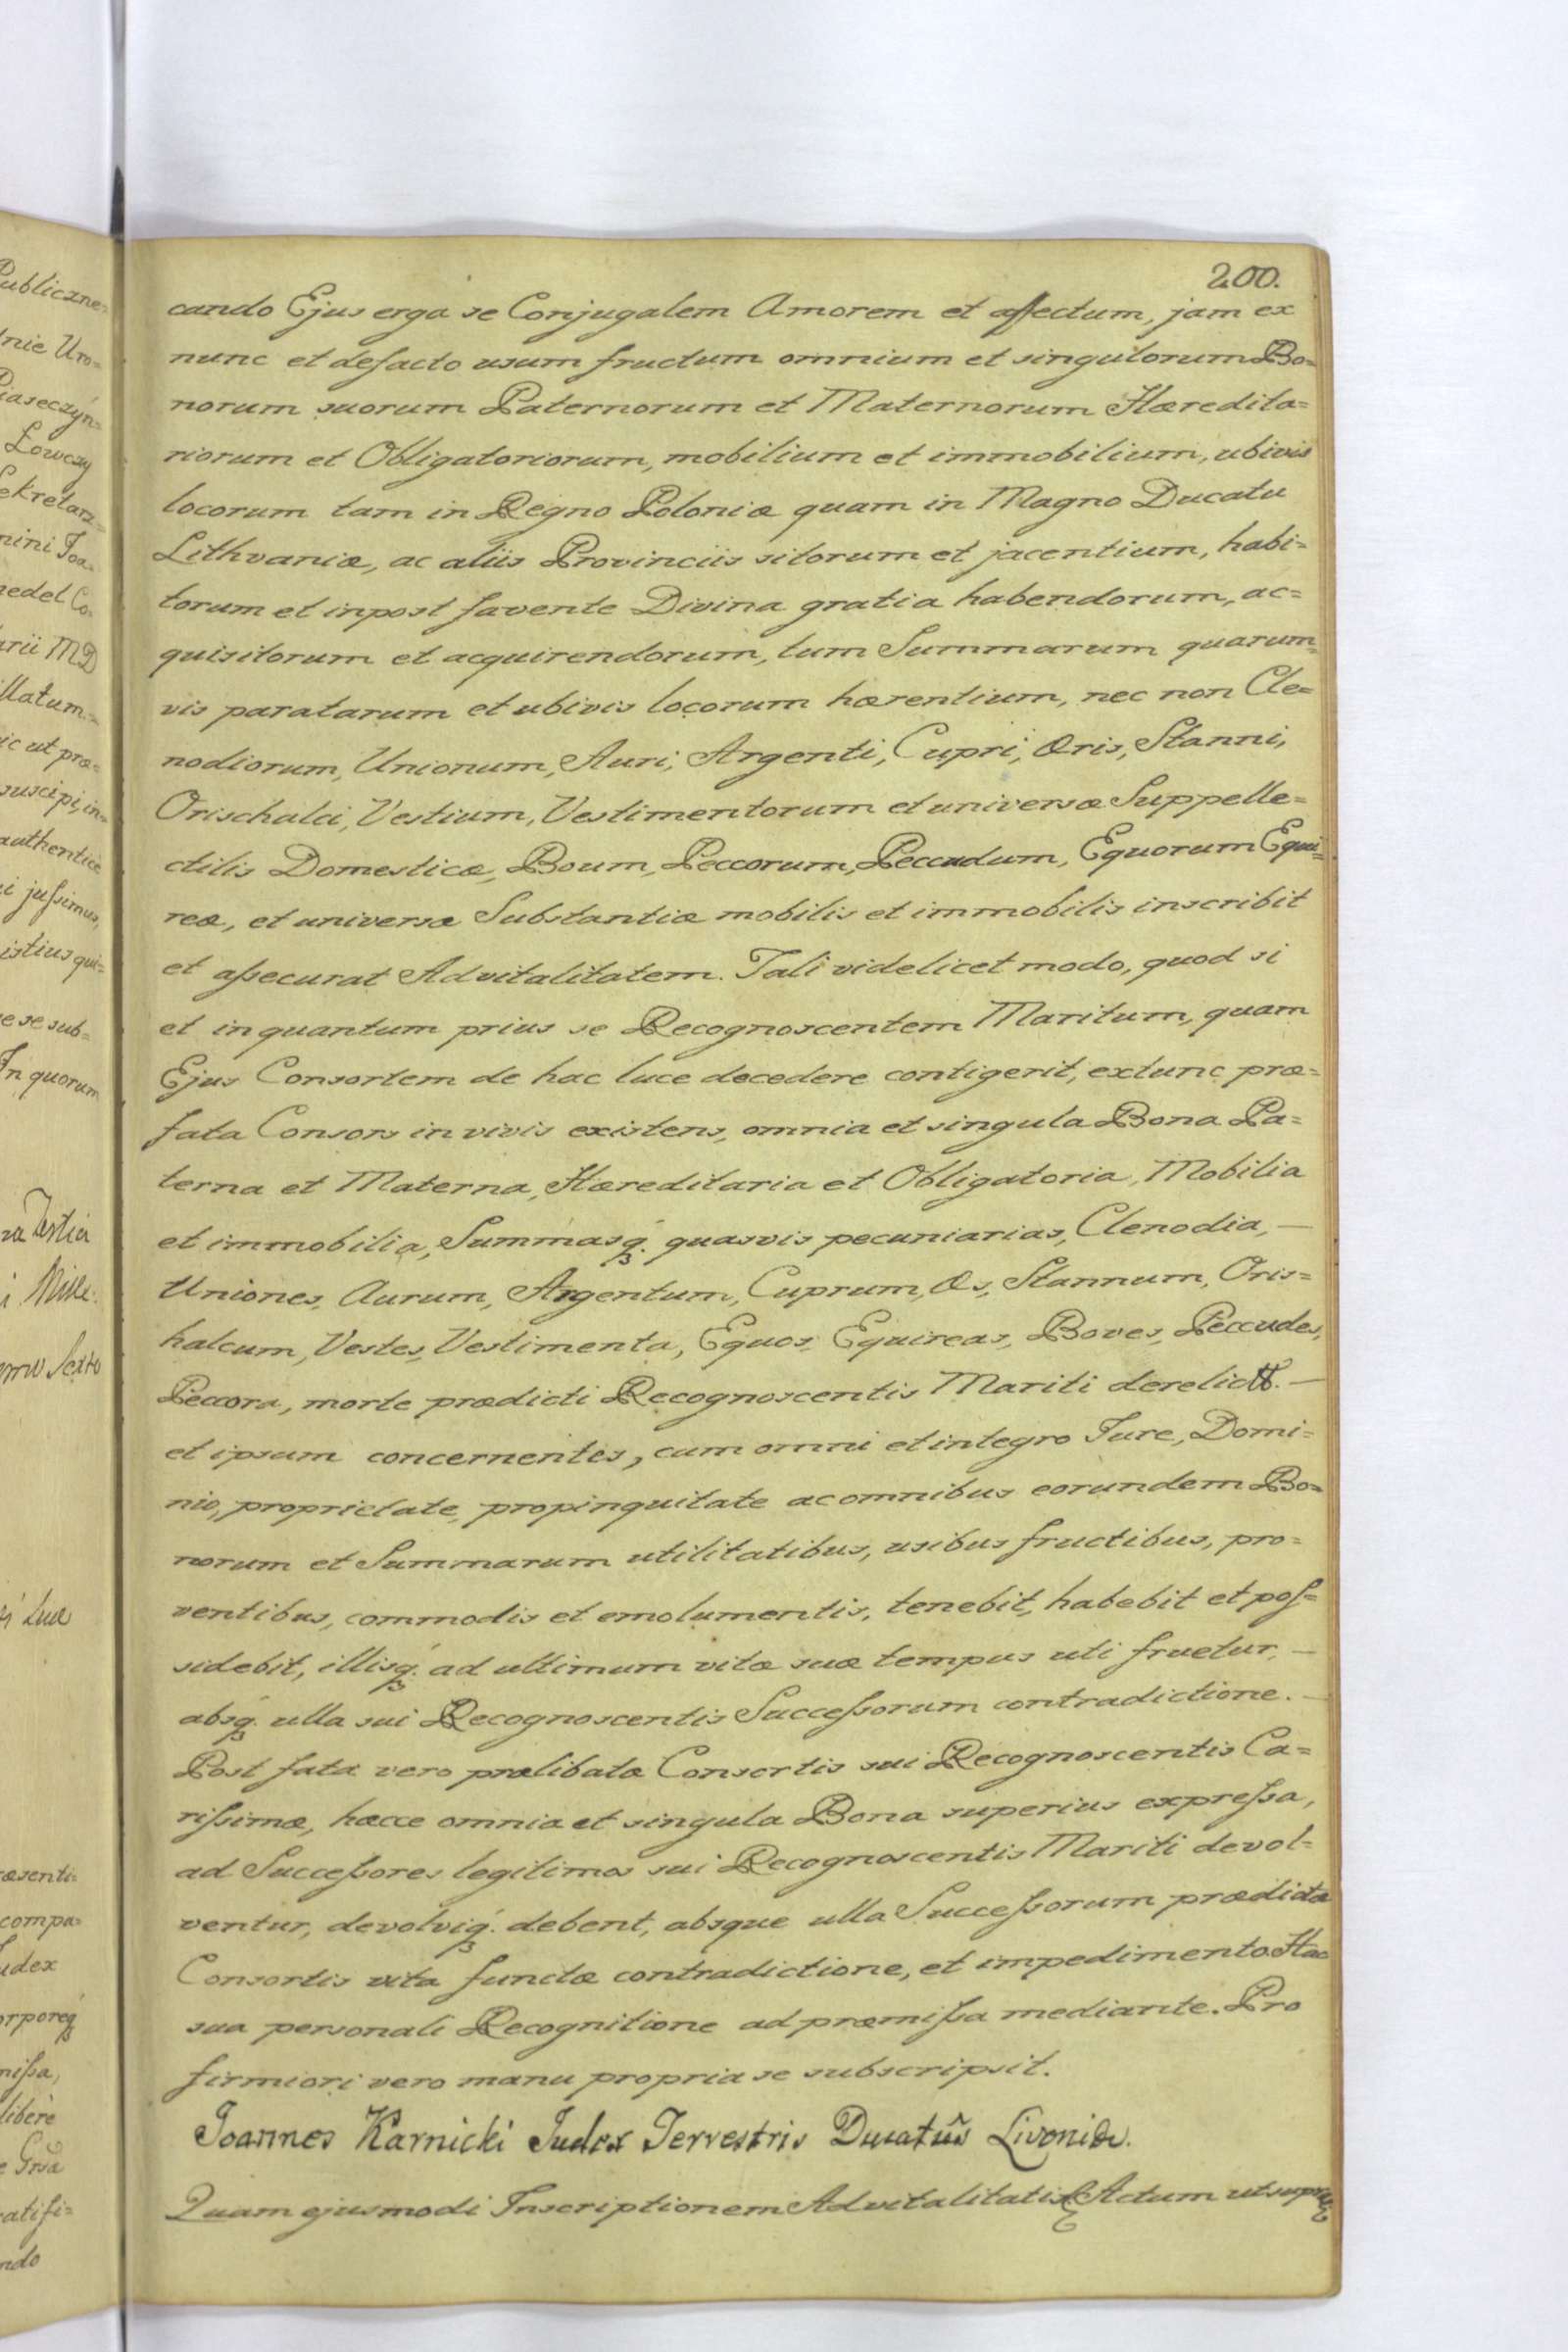 200.
cando Ejus erga se Conjugalem Amorem et affectum, jam ex
nunc et defacto usum fructum omnium et singulorum Bo=
norum suorum Paternorum et Maternorum Hæredita=
riorum et Obligatoriorum, mobilium et immobilium, ubivis
locorum tam in Regno Poloniæ quam in Magno Ducatu
Lithvaniæ, ac aliis Provinciis sitorum et jacentium, habi=
torum et inpost favente Divina gratia habendorum, ac=
quisitorum et acquirendorum, tum Summarum quarum=
vis paratarum et ubivis locorum hærentium, nec non Cle=
nodiorum, Unionum, Auri, Argenti, Cupri, Æris, Stanni,
Orischalci, Vestium, Vestimentorum et universæ Suppelle=
ctilis Domesticæ, Boum, Peccorum, Peccudum, Equorum Equi=
reæ, et universæ Substantiæ mobilis et immobilis inscribit
et aſsecurat Advitalitatem. Tali videlicet modo, quod si
et inquantum prius se Recognoscentem Maritum, quam
Ejus Consortem de hac luce decedere contigerit, extunc præ=
fata Consors in vivis existens, omnia et singula Bona Pa=
terna et Materna, Hæreditaria et Obligatoria, Mobilia
et immobilia, Summasq́ꝫ. quasvis pecuniarias, Clenodia, —
Uniones, Aurum, Argentum, Cuprum, Æs, Stannum, Oris=
halcum, Vestes, Vestimenta, Equos, Equireas, Boves, Peccudes,
Peccora, morte prædicti Recognoscentis Mariti derelict. —
et ipsum concernentes, cum omni et integro Jure, Domi=
nio, proprietate, propinquitate ac omnibus eorundem Bo=
norum et Summarum utilitatibus, usibus fructibus, pro=
ventibus, commodis et emolumentis, tenebit, habebit et poſ=
sidebit, illisq́ꝫ. ad ultimum vitæ suæ tempus uti fruetur, —
absq́ꝫ. ulla sui Recognoscentis Succeſsorum contradictione. —
Post fata vero prælibatæ Consortis sui Recognoscentis Ca=
riſsimæ, hæcce omnia et singula Bona superius expreſsa,
ad Succeſsores legitimos sui Recognoscentis Mariti devol=
ventur, devolviq́ꝫ. debent, absque ulla Succeſsorum prædictæ
Consortis vita functæ contradictione, et impedimento. Hac
sua personali Recognitione ad præmiſsa mediante. Pro
firmiori vero manu propria se subscripsit.
Joannes Karnicki Judex Terrestris Ducatûs Livoniæ.
Quam ejusmodi Inscriptionem Advitalitatis Actum ut supra